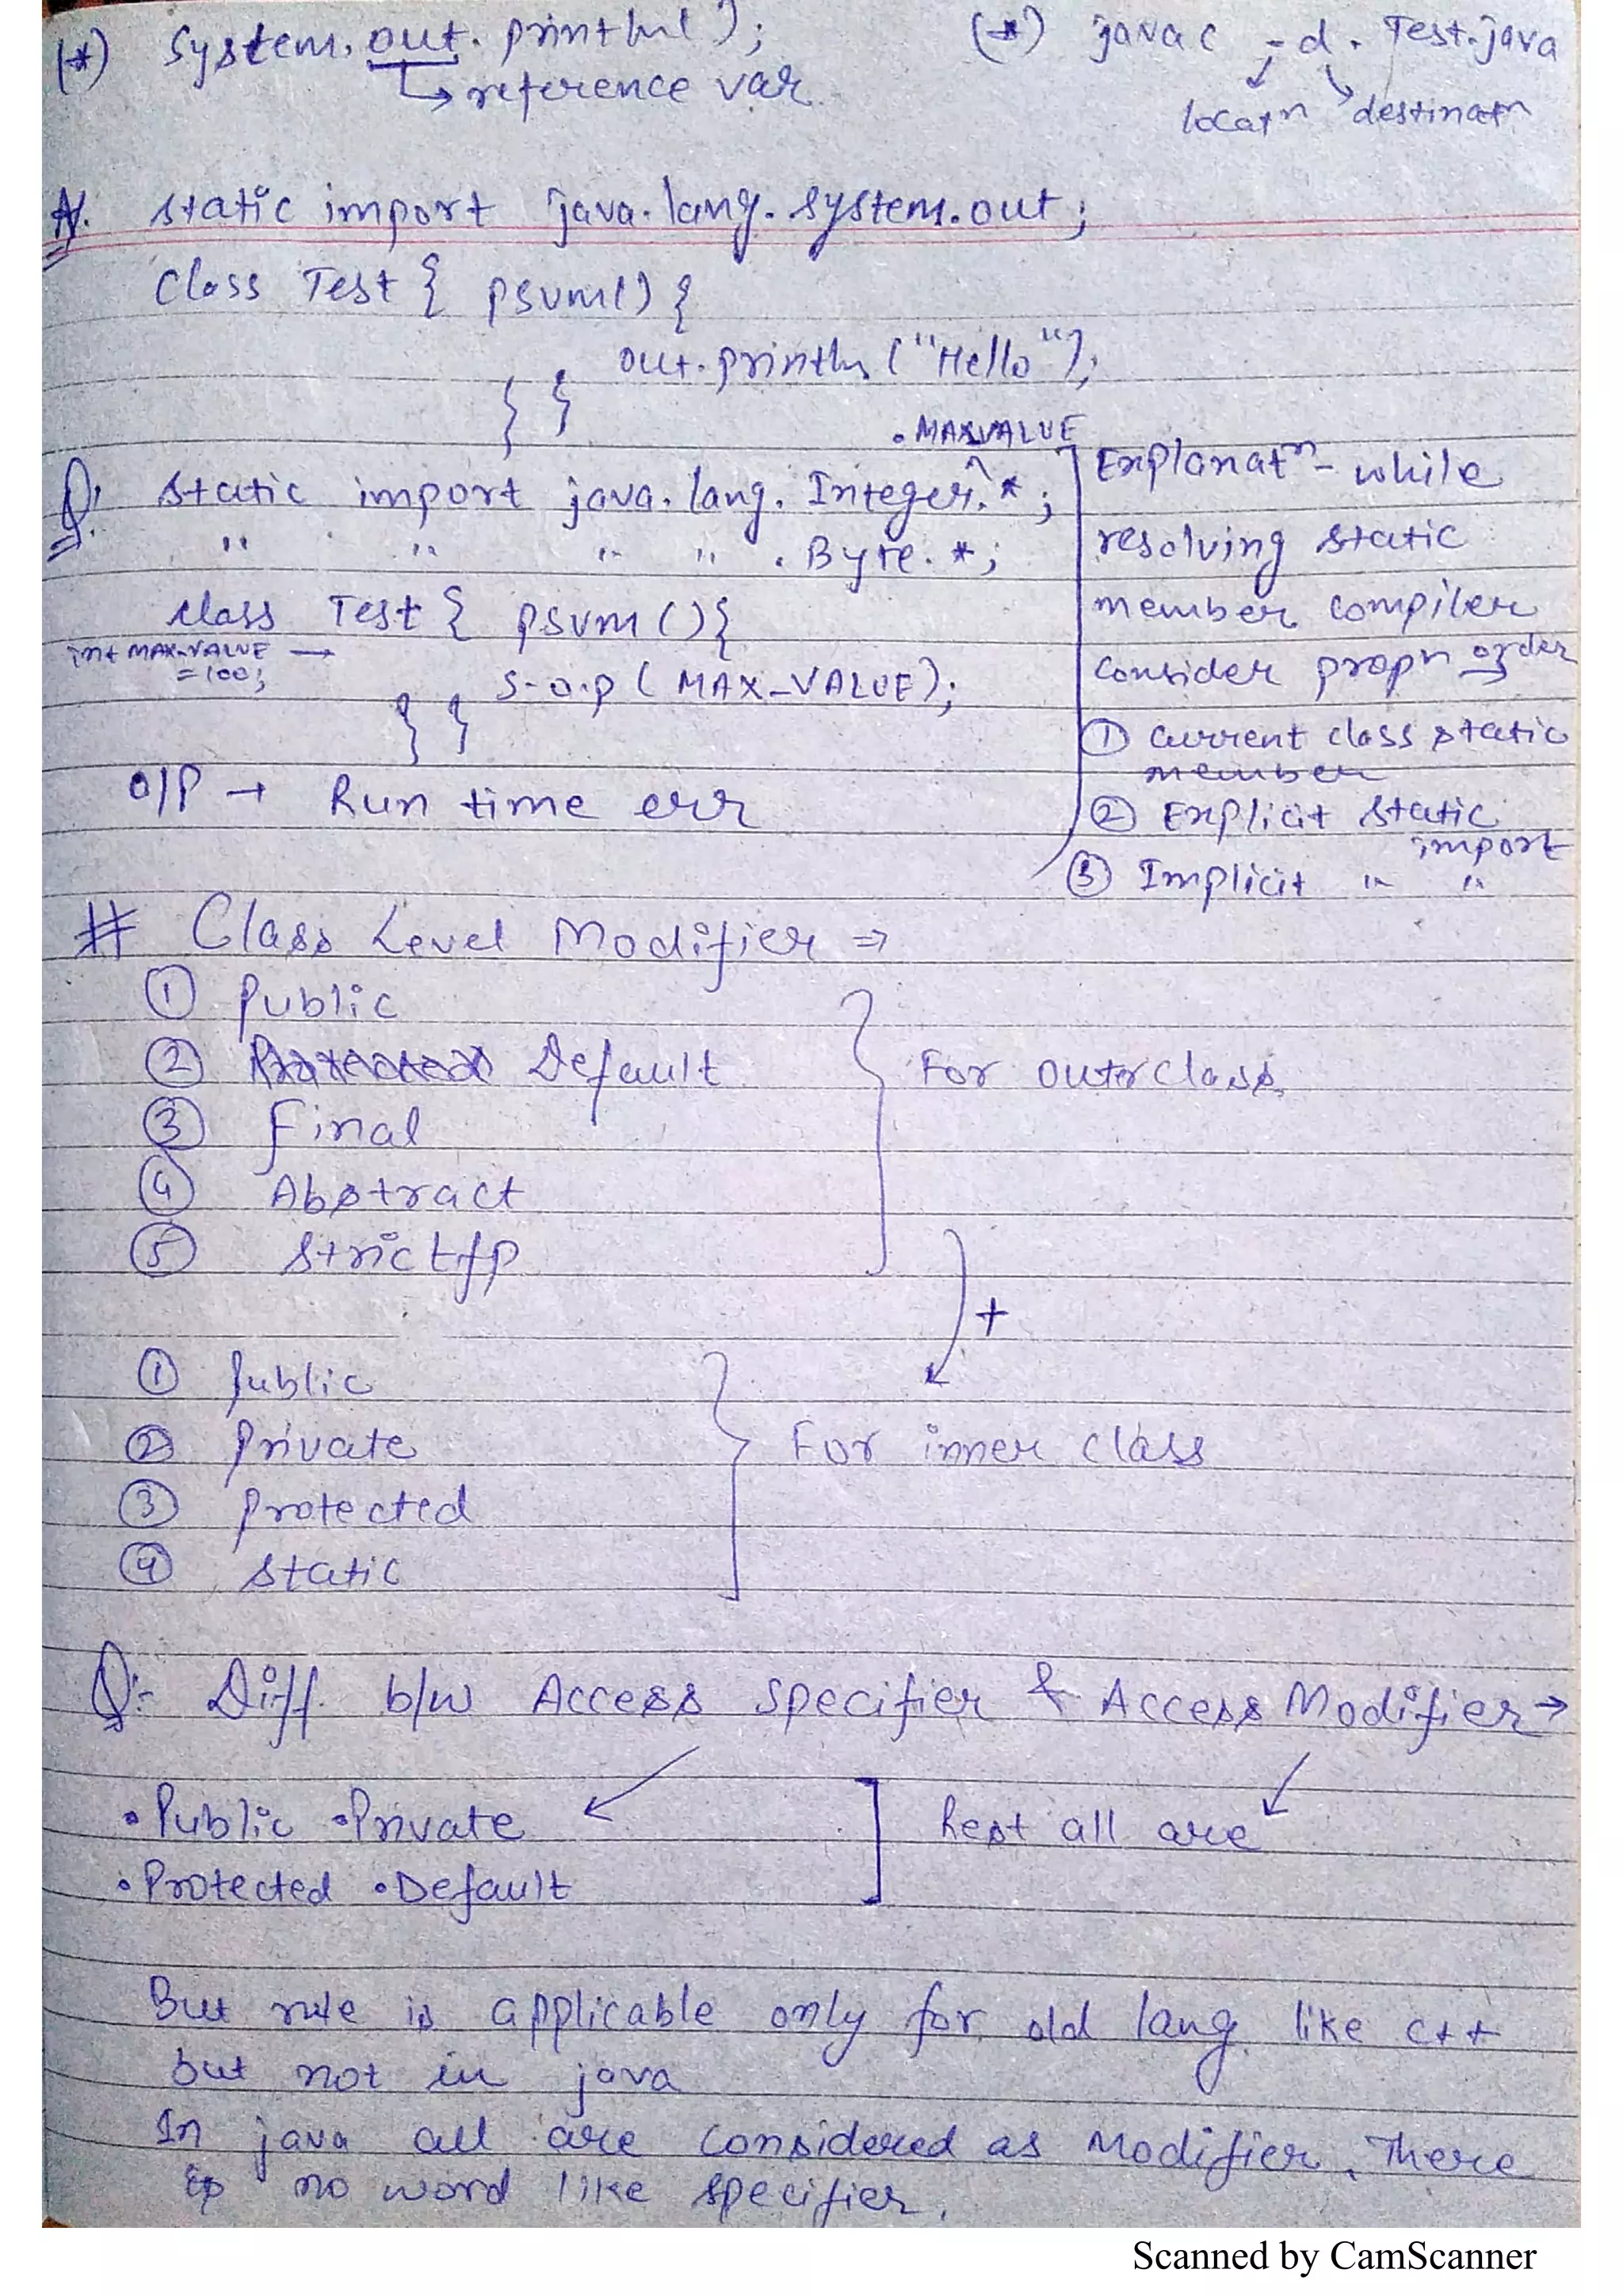 (*) System.out.println();
↳ reference var
(*) javac -d . Test.java
locatn destinatn
static import java.lang.System.out;
Class Test { psvm() {
out.println("Hello");
} }
.MAXVALUE
Q: static import java.lang.Integer.*;
" " " " .Byte.*;
class Test { psvm(){
int MAX-VALUE →
=100;
S.o.p (MAX_VALUE);
} }
O/P → Run time err
Explanatn - while
resolving static
member compiler
consider propn order
① Current class static
member
② Explicit static
import
③ Implicit " "
# Class Level Modifier ⇒
① Public
② Protected Default
③ Final
④ Abstract
⑤ Strictfp
For outer class
+
① Public
② Private
③ Protected
④ static
For inner class
Q:- Diff. b/w Access Specifier & Access Modifier →
• Public • Private
• Protected • Default
Rest all are
But rule is applicable only for old lang. like C++
but not in java
In java all are considered as Modifier. There
is no word like specifier.
Scanned by CamScanner